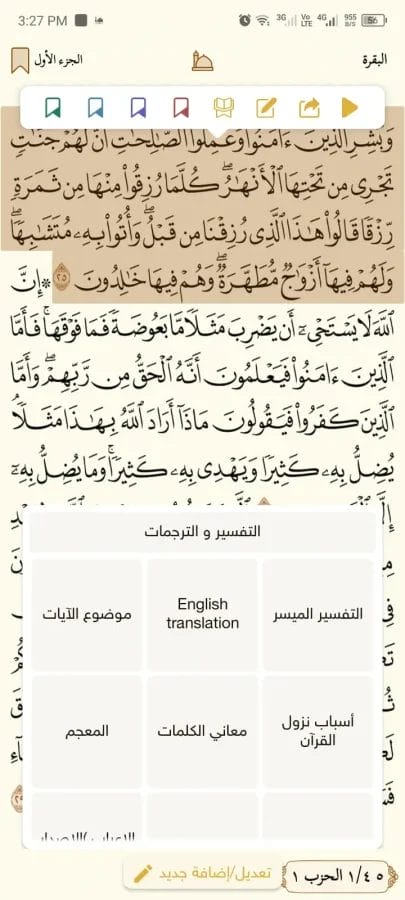 3:27 PM 3G Vo LTE 4G 955 B/S 56
البقرة الجزء الأول
وَبَشِّرِ الَّذِينَ ءَامَنُوا وَعَمِلُوا الصَّٰلِحَٰتِ أَنَّ لَهُمْ جَنَّٰتٍ
تَجْرِي مِن تَحْتِهَا الْأَنْهَٰرُ ۖ كُلَّمَا رُزِقُوا مِنْهَا مِن ثَمَرَةٍ
رِّزْقًا قَالُوا هَٰذَا الَّذِي رُزِقْنَا مِن قَبْلُ ۖ وَأُتُوا بِهِۦ مُتَشَٰبِهًا ۖ
وَلَهُمْ فِيهَا أَزْوَٰجٌ مُّطَهَّرَةٌ ۖ وَهُمْ فِيهَا خَٰلِدُونَ ٢٥ ۞ إِنَّ
اللَّهَ لَا يَسْتَحْيِۦ أَن يَضْرِبَ مَثَلًا مَّا بَعُوضَةً فَمَا فَوْقَهَا ۚ فَأَمَّا
الَّذِينَ ءَامَنُوا فَيَعْلَمُونَ أَنَّهُ الْحَقُّ مِن رَّبِّهِمْ ۖ وَأَمَّا
الَّذِينَ كَفَرُوا فَيَقُولُونَ مَاذَا أَرَادَ اللَّهُ بِهَٰذَا مَثَلًا ۘ
يُضِلُّ بِهِۦ كَثِيرًا وَيَهْدِي بِهِۦ كَثِيرًا ۚ وَمَا يُضِلُّ بِهِۦ
التفسير و الترجمات
التفسير الميسر
English translation
موضوع الآيات
أسباب نزول القرآن
معاني الكلمات
المعجم
تعديل/إضافة جديد
٥ ١/٤ الحزب ١